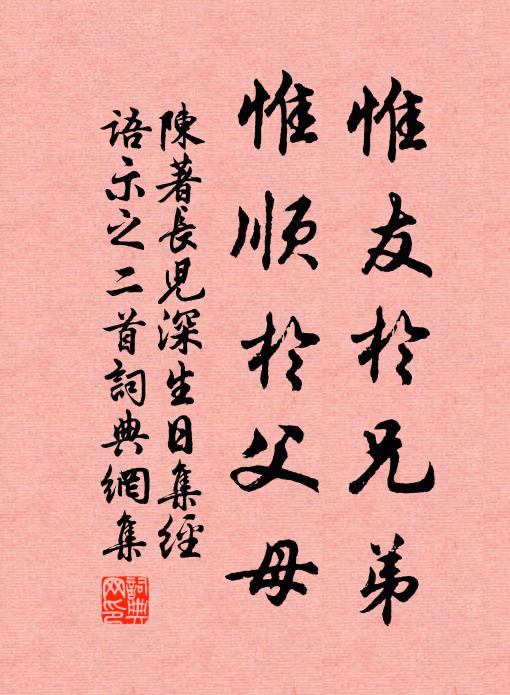 惟友於兄弟
惟順於父母
陳著長兒深生日集經
語示之二首詞典網集
詞典網印